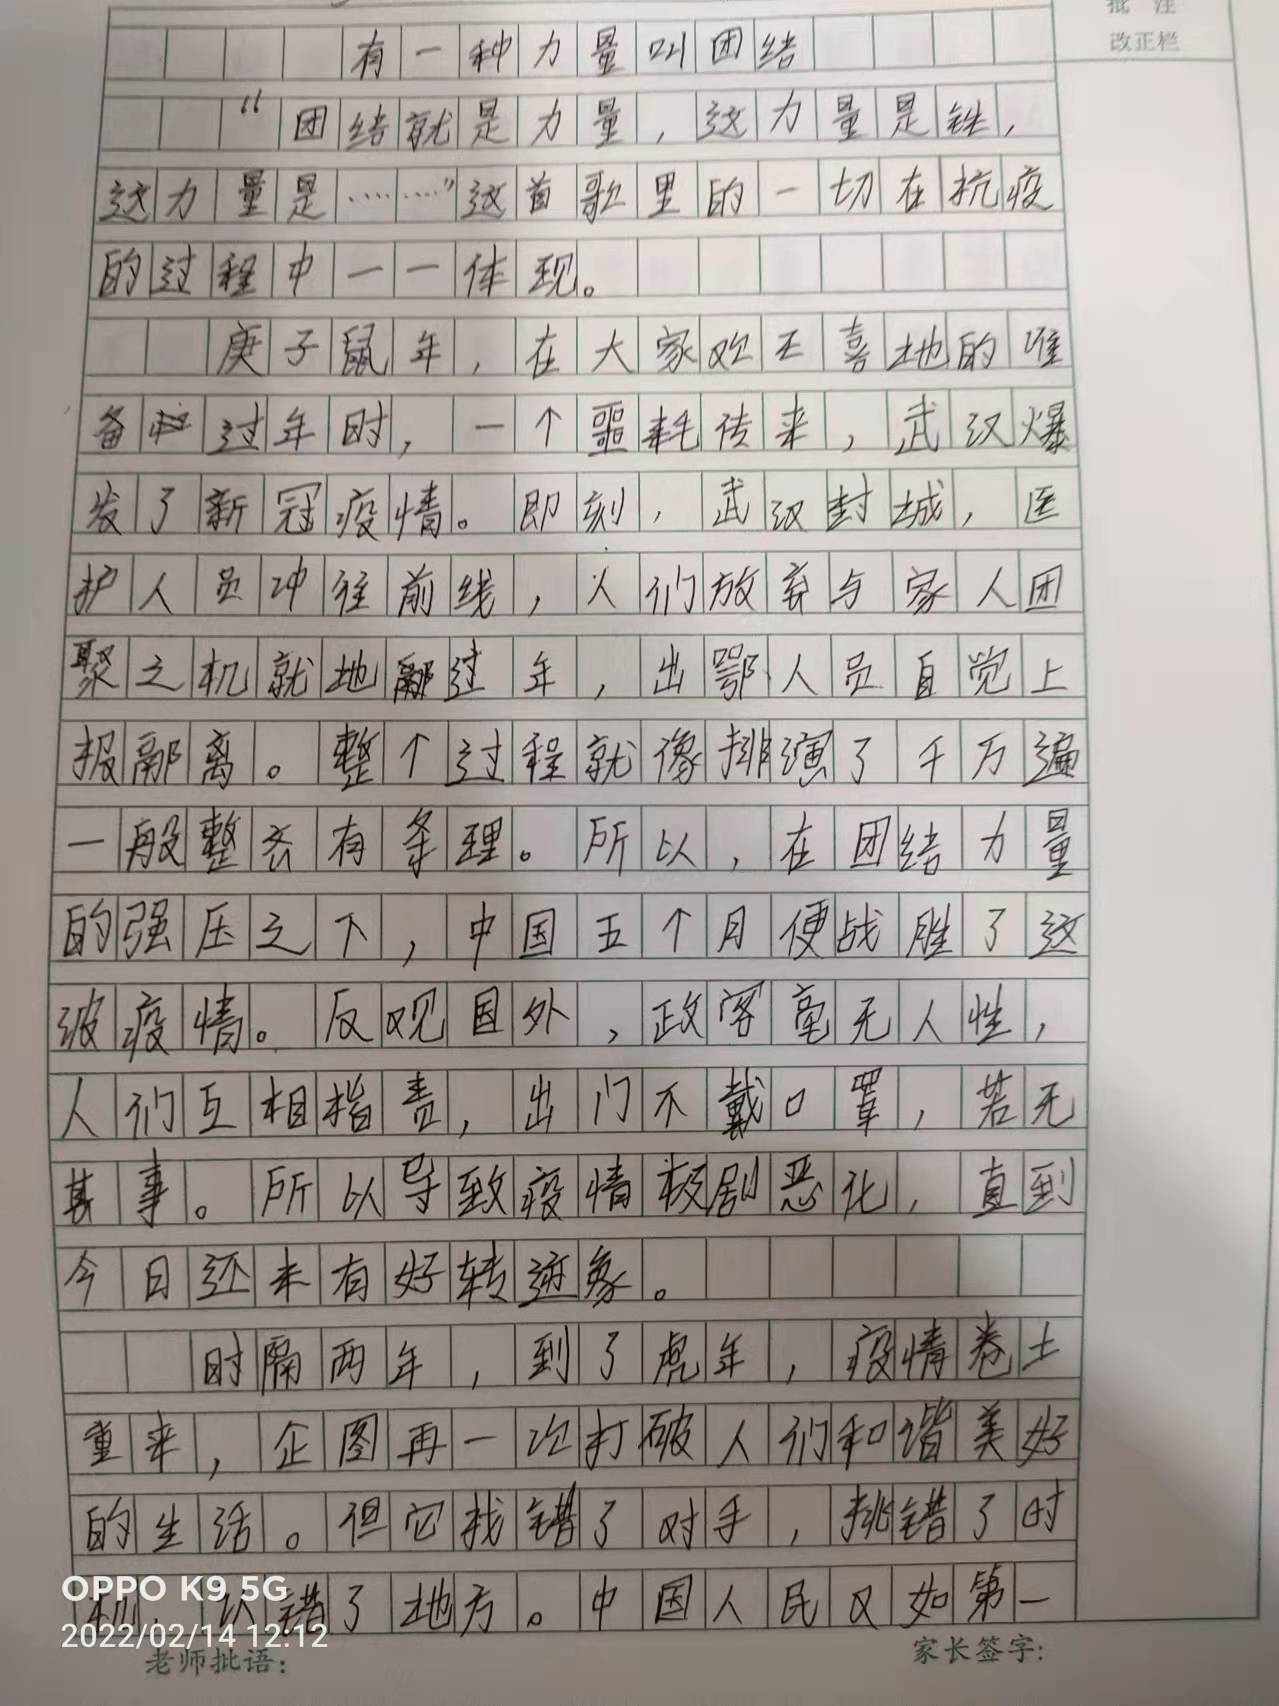 批 注
改正栏
有一种力量叫团结
“团结就是力量，这力量是铁，
这力量是…………”这首歌里的一切在抗疫
的过程中一一体现。
庚子鼠年，在大家欢天喜地的准
备过年时，一个噩耗传来，武汉爆
发了新冠疫情。即刻，武汉封城，医
护人员冲往前线，人们放弃与家人团
聚之机就地过年，出鄂人员自觉上
报鄙离。整个过程就像排演了千万遍
一般整衣有条理。所以，在团结力量
的强压之下，中国五个月便战胜了这
波疫情。反观国外，政客毫无人性，
人们互相指责，出门不戴口罩，若无
其事。所以导致疫情极剧恶化，直到
今日还未有好转迹象。
时隔两年，到了虎年，疫情卷土
重来，企图再一次打破人们和谐美好
的生活。但它找错了对手，挑错了时
机，认错了地方。中国人民又如第一
OPPO K9 5G
2022/02/14 12:12
老师批语：
家长签字：